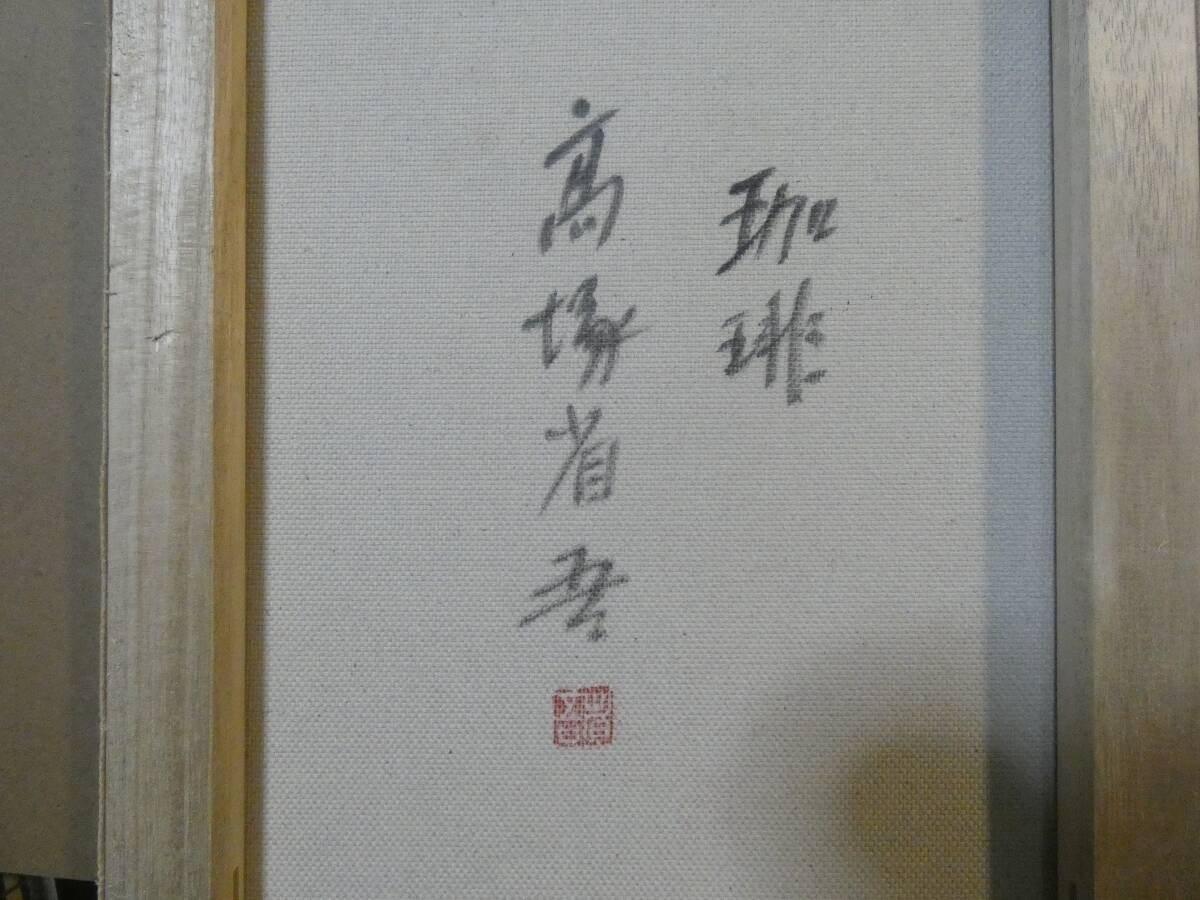 珈琲
高塚省吾